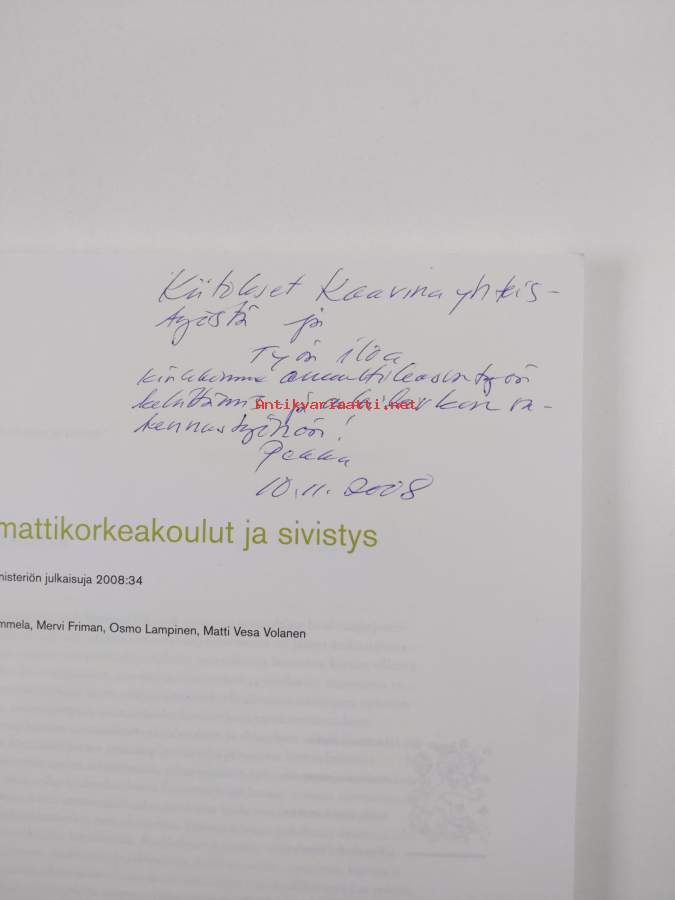 Kiitokset Kaarina yhteis-
työstä ja
Työn iloa
ammattikasvatustyön
Antikvariaatti.net
rakennustyöhön!
Pekka
10.11.2008
mattikorkeakoulut ja sivistys
nisteriön julkaisuja 2008:34
mmela, Mervi Friman, Osmo Lampinen, Matti Vesa Volanen